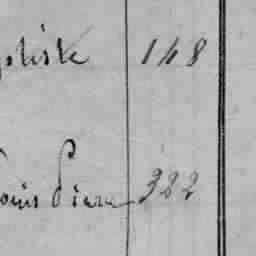 ptiste 148
Louis Pierre 322